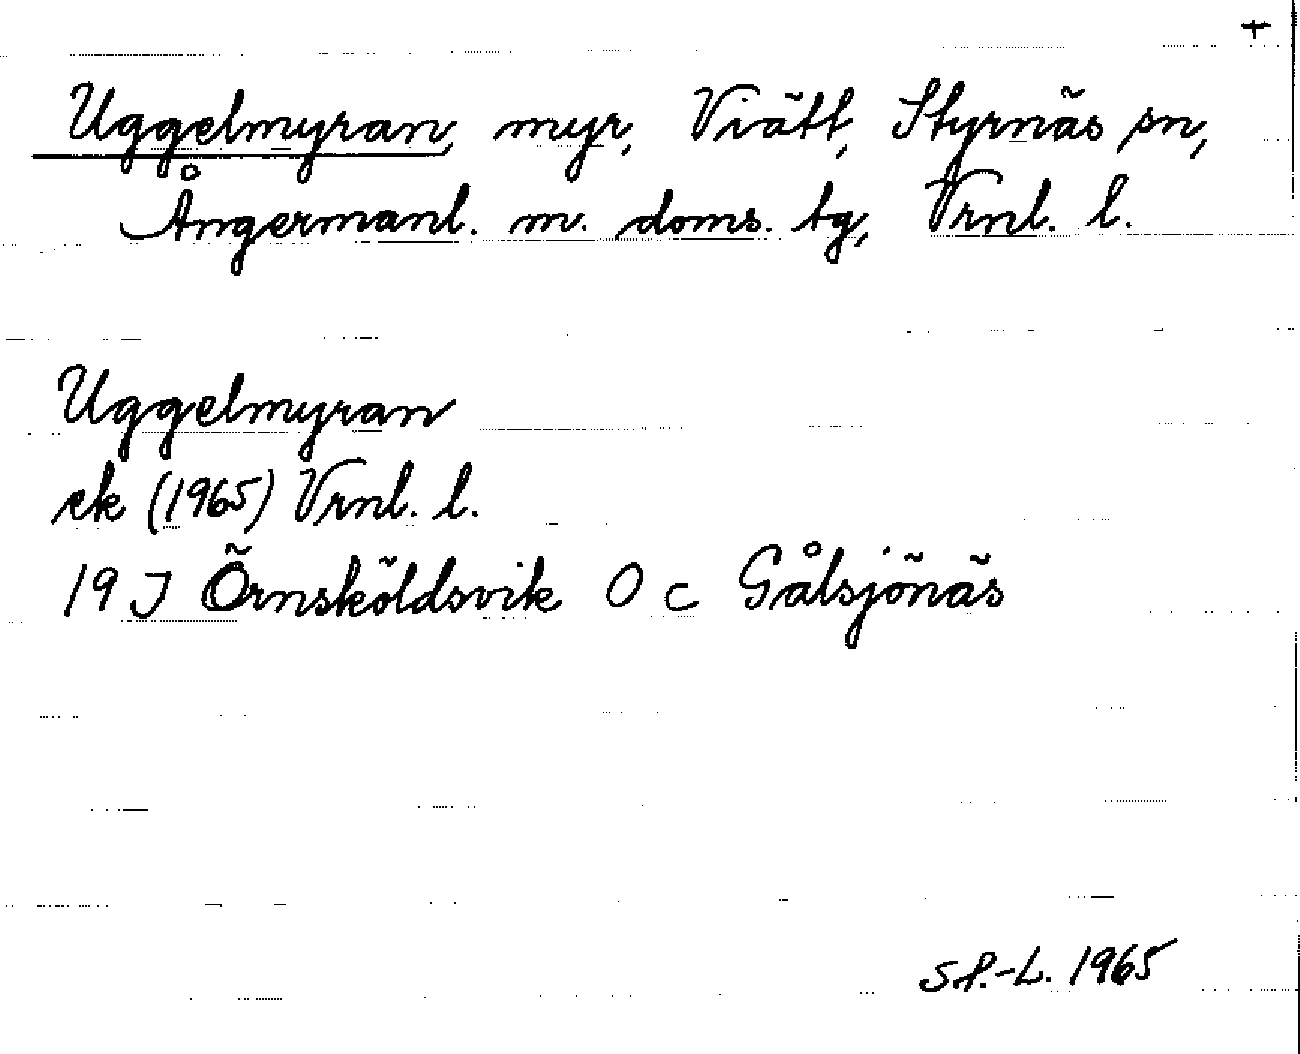 +
Uggelmyran, myr, Viätt, Styrnäs sn,
Ångermanl. m. doms. tg, Vrnl. l.
Uggelmyran
ek (1965) Vrnl. l.
19 J Örnsköldsvik O c Gålsjönäs
S.P.-L. 1965